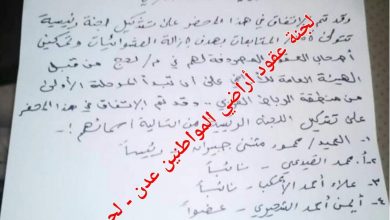 وقد تم الاتفاق في هذا المحضر على تشكيل لجنة رئيسية
تتولى المتابعات بهدف إزالة العشوائيات وتمكين
أصحاب العقود المصروفة لهم في م/ لحج من قبل
الهيئة العامة على أن تبدأ المرحلة الأولى
من منطقة الرباط الغربي - وقد تم الاتفاق في هذا المحضر
على تشكيل اللجنة من التالية أسمائهم :-
١- العميد/ محمود مثنى رئيساً
٢- أ. محمد نائباً
٣- علاء أحمد نائباً
٤- أيمن أحمد عضواً
لجنة عقود أراضي المواطنين عدن - لحج